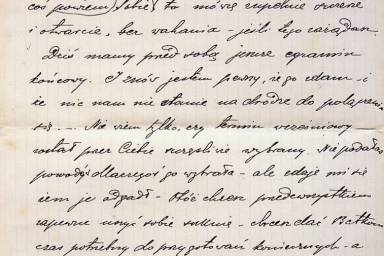 coś powiem Tobie to mówię zupełnie szczerze
i otwarcie, bez wahania - jeśli tego zażądasz.
Dziś mamy przed sobą jeszcze egzamin
końcowy. I znów jestem pewny, że go zdam - i
że nic nam nie stanie na drodze do połączenia
się. - Nie wiem tylko, czy termin wrześniowy
został przez Ciebie szczęśliwie wybrany. Nie podałaś
powodu dlaczegoś go wybrała - ale zdaje mi się
żem je odgadł - Otóż chcesz przedewszystkiem
zapewne uszyć sobie suknie - chcesz dać
czas potrzebny do przygotowań koniecznych - a